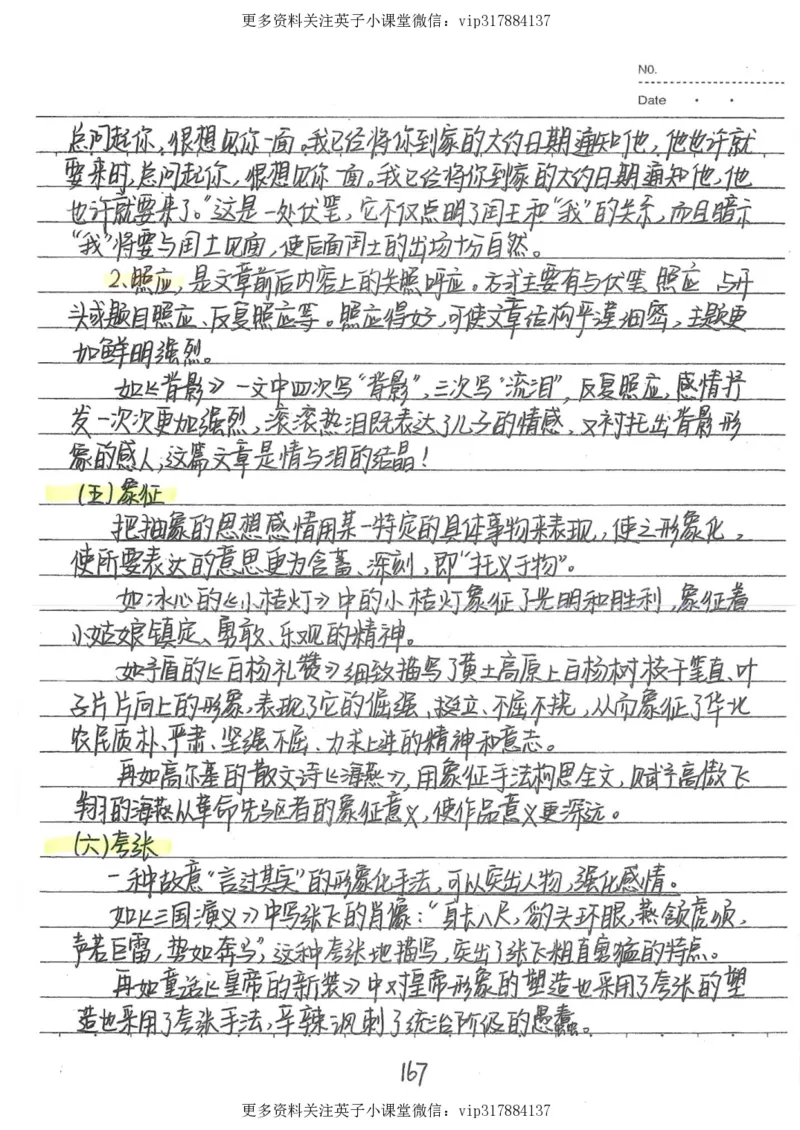 更多资料关注英子小课堂微信：vip317884137
NO.
Date
总问起你，很想见你一面。我已经将你到家的大约日期通知他，他也许就
要来时，总问起你，很想见你一面。我已经将你到家的大约日期通知他，他
也许就要来了。”这是一处伏笔，它不仅点明了闰土和“我”的关系，而且暗示
“我”将要与闰土见面，使后面闰土的出场十分自然。
2、照应，是文章前后内容上的关照呼应。方式主要有与伏笔照应、与开
头或题目照应、反复照应等。照应得好，可使文章结构平谨细密，主题更
加鲜明强烈。
如《背影》一文中四次写“背影”，三次写“流泪”，反复照应，感情抒
发一次次更加强烈，滚滚热泪既表达了儿子的情感，又衬托出背影形
象的感人，这篇文章是情与泪的结晶！
（五）象征
把抽象的思想感情用某一特定的具体事物来表现，使之形象化，
使所要表达的意思更为含蓄、深刻，即“托义于物”。
如冰心的《小桔灯》中的小桔灯象征了光明和胜利，象征着
小姑娘镇定、勇敢、乐观的精神。
如矛盾的《白杨礼赞》细致描写了黄土高原上白杨树枝干笔直、叶
子片片向上的形象，表现了它的倔强、挺立、不屈不挠，从而象征了华北
农民质朴、严肃、坚强不屈、力求上进的精神和意志。
再如高尔基的散文诗《海燕》，用象征手法构思全文，赋予高傲飞
翔的海燕以革命先驱者的象征意义，使作品意义更深远。
（六）夸张
一种故意“言过其实”的形象化手法，可以突出人物，强化感情。
如《三国演义》中写张飞的肖像：“身长八尺，豹头环眼，燕颔虎须，
声若巨雷，势如奔马”，这种夸张地描写，突出了张飞粗直勇猛的特点。
再如童话《皇帝的新装》中对皇帝形象的塑造也采用了夸张的塑
造也采用了夸张手法，辛辣讽刺了统治阶级的愚蠢。
167
更多资料关注英子小课堂微信：vip317884137